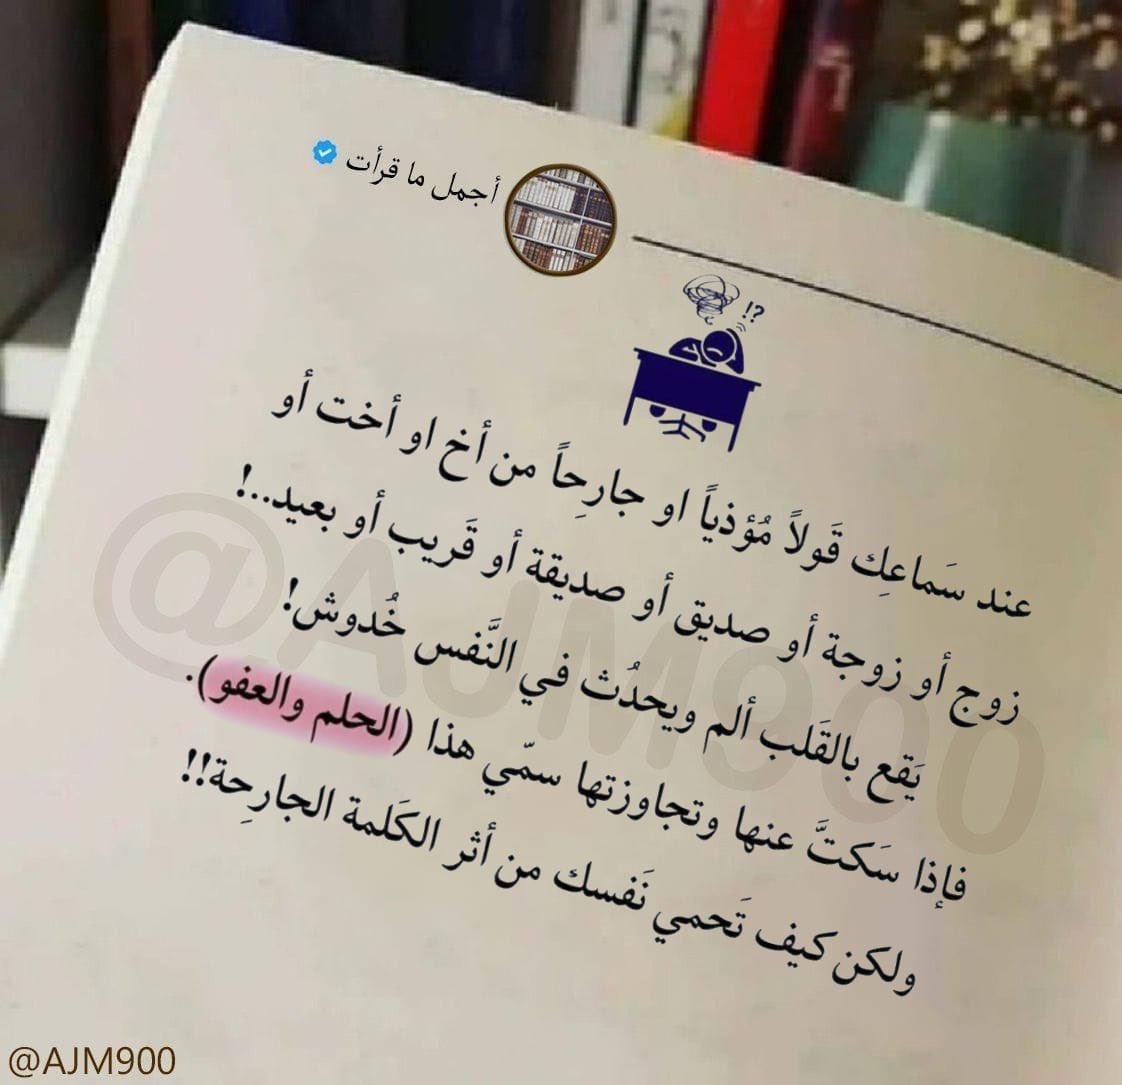 أجمل ما قرأت
!?
عند سَماعِك قَولاً مُؤذياً او جارِحاً من أخ او أخت أو
زوج أو زوجة أو صديق أو صديقة أو قَريب أو بعيد..!
يَقع بالقَلب ألم ويحدُث في النَّفس خُدوش!
فإذا سَكتَّ عنها وتجاوزتها سمّي هذا (الحلم والعفو).
ولكن كيف تَحمي نَفسك من أثر الكَلمة الجارِحة!!
@AJM900
@AJM900